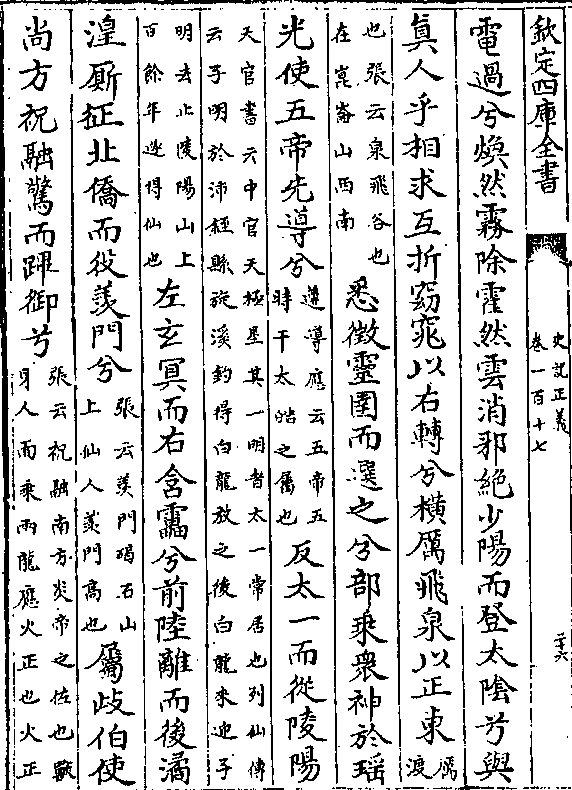 欽定四庫全書
史記正義
卷一百十七
二十六
電過兮煥然霧除霍然雲消邪絶少陽而登太陰兮與
眞人乎相求互折窈窕以右轉兮橫厲飛泉以正東厲渡
也張云泉飛谷也在崑崙山西南悉徵靈圉而選之兮部乘衆神於瑶
光使五帝先導兮遵導應云五帝五時干太皓之屬也反太一而從陵陽
天官書云中官天極星其一明者太一常居也列仙傳
云子明於沛銍縣旋溪釣得白龍放之後白龍來迎子
明去止陵陽山上百餘年遂得仙也左玄冥而右含靁兮前陸離而後潏
湟厮征北僑而役羨門兮張云羨門碣石山上仙人羨門高也屬岐伯使
尚方祝融驚而蹕御兮張云祝融南方炎帝之佐也獸身人面乘兩龍應火正也火正